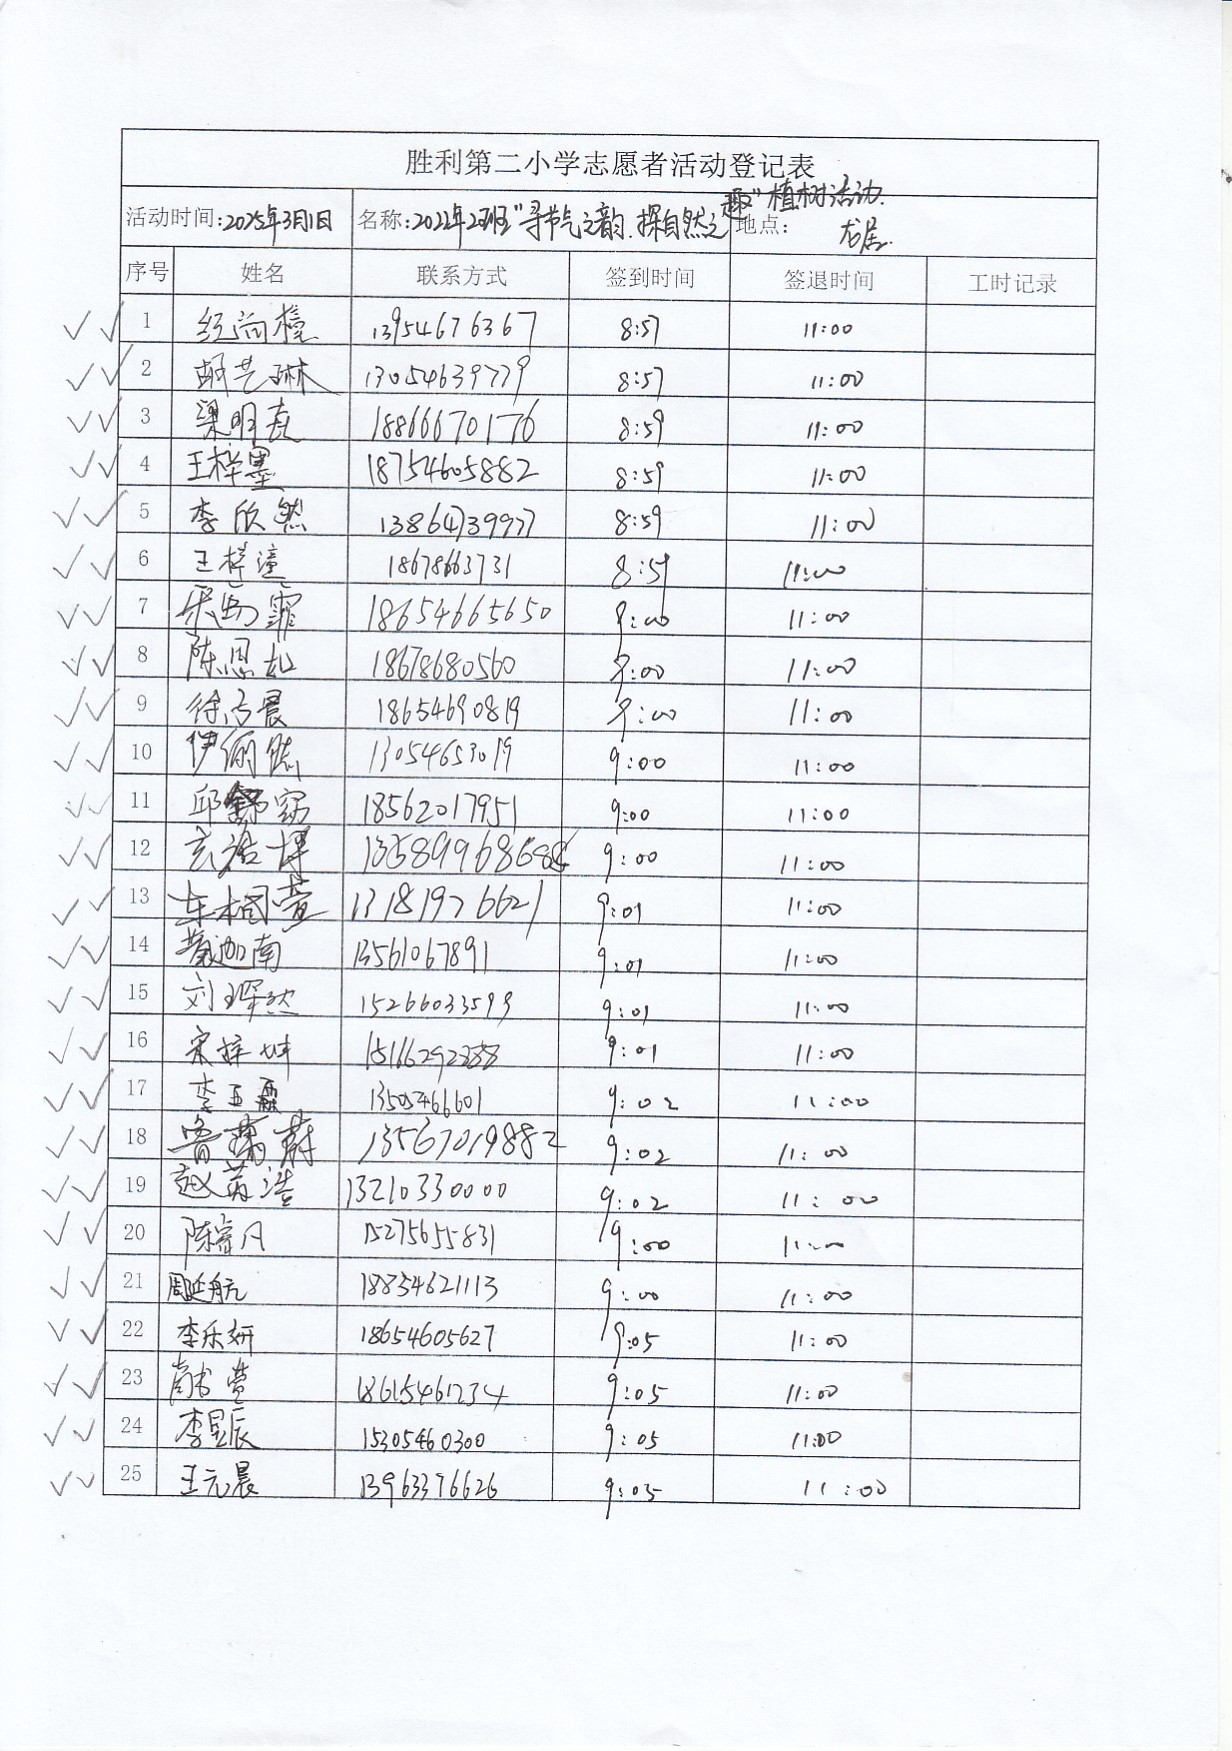 胜利第二小学志愿者活动登记表
活动时间:2025年3月1日 名称:2022年2班"寻节气之韵.探自然之趣"植树活动. 地点: 龙居.
序号 姓名 联系方式 签到时间 签退时间 工时记录
1 13954676367 8:57 11:00
2 胡艺琳 13054639779 8:57 11:00
3 梁明熹 18866670176 8:59 11:00
4 王梓墨 18754605882 8:59 11:00
5 李欣然 13864739977 8:59 11:00
6 王梓潼 18678663731 8:59 11:00
7 18654665650 9:00 11:00
8 陈思 18678680560 9:00 11:00
9 徐 晨 18654690819 9:00 11:00
10 伊 13054653019 9:00 11:00
11 邱 18562017951 9:00 11:00
12 9:00 11:00
13 车 萱 13181976621 9:01 11:00
14 黄迦南 13561067891 9:01 11:00
15 刘琛然 15266033599 9:01 11:00
16 宋梓坤 15166292288 9:01 11:00
17 李玉霖 13505466601 9:02 11:00
18 鲁 蔚 13567019882 9:02 11:00
19 赵 浩 13210330000 9:02 11:00
20 陈睿凡 15275655831 9:00 11:00
21 周延航 18854621113 9:00 11:00
22 李乐妍 18654605627 9:05 11:00
23 尚书萱 18615461234 9:05 11:00
24 李昱辰 15305460300 9:05 11:00
25 王元晨 13963376626 9:05 11:00